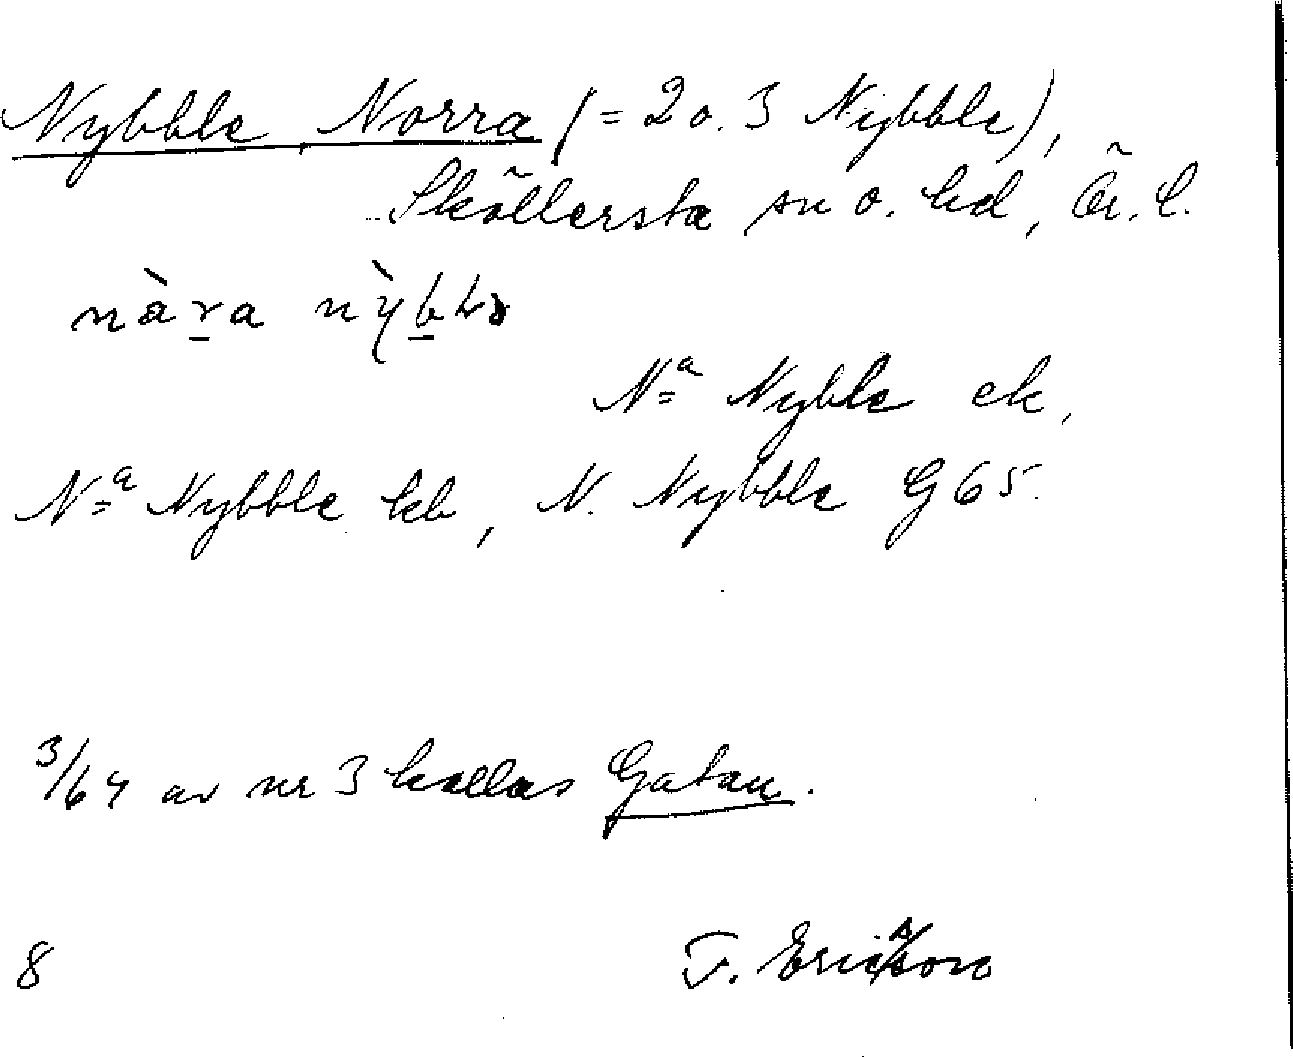 Nybble, Norra (= 2 o. 3 Nybble),
Sköllersta sn o. hd, Ör. l.
nàra nỳbbɩə
Nᵃ Nyble ek,
Nᵃ Nybble kb, N. Nybble G 65.
3/64 av nr 3 kallas Gatan.
8 F. Ericsson